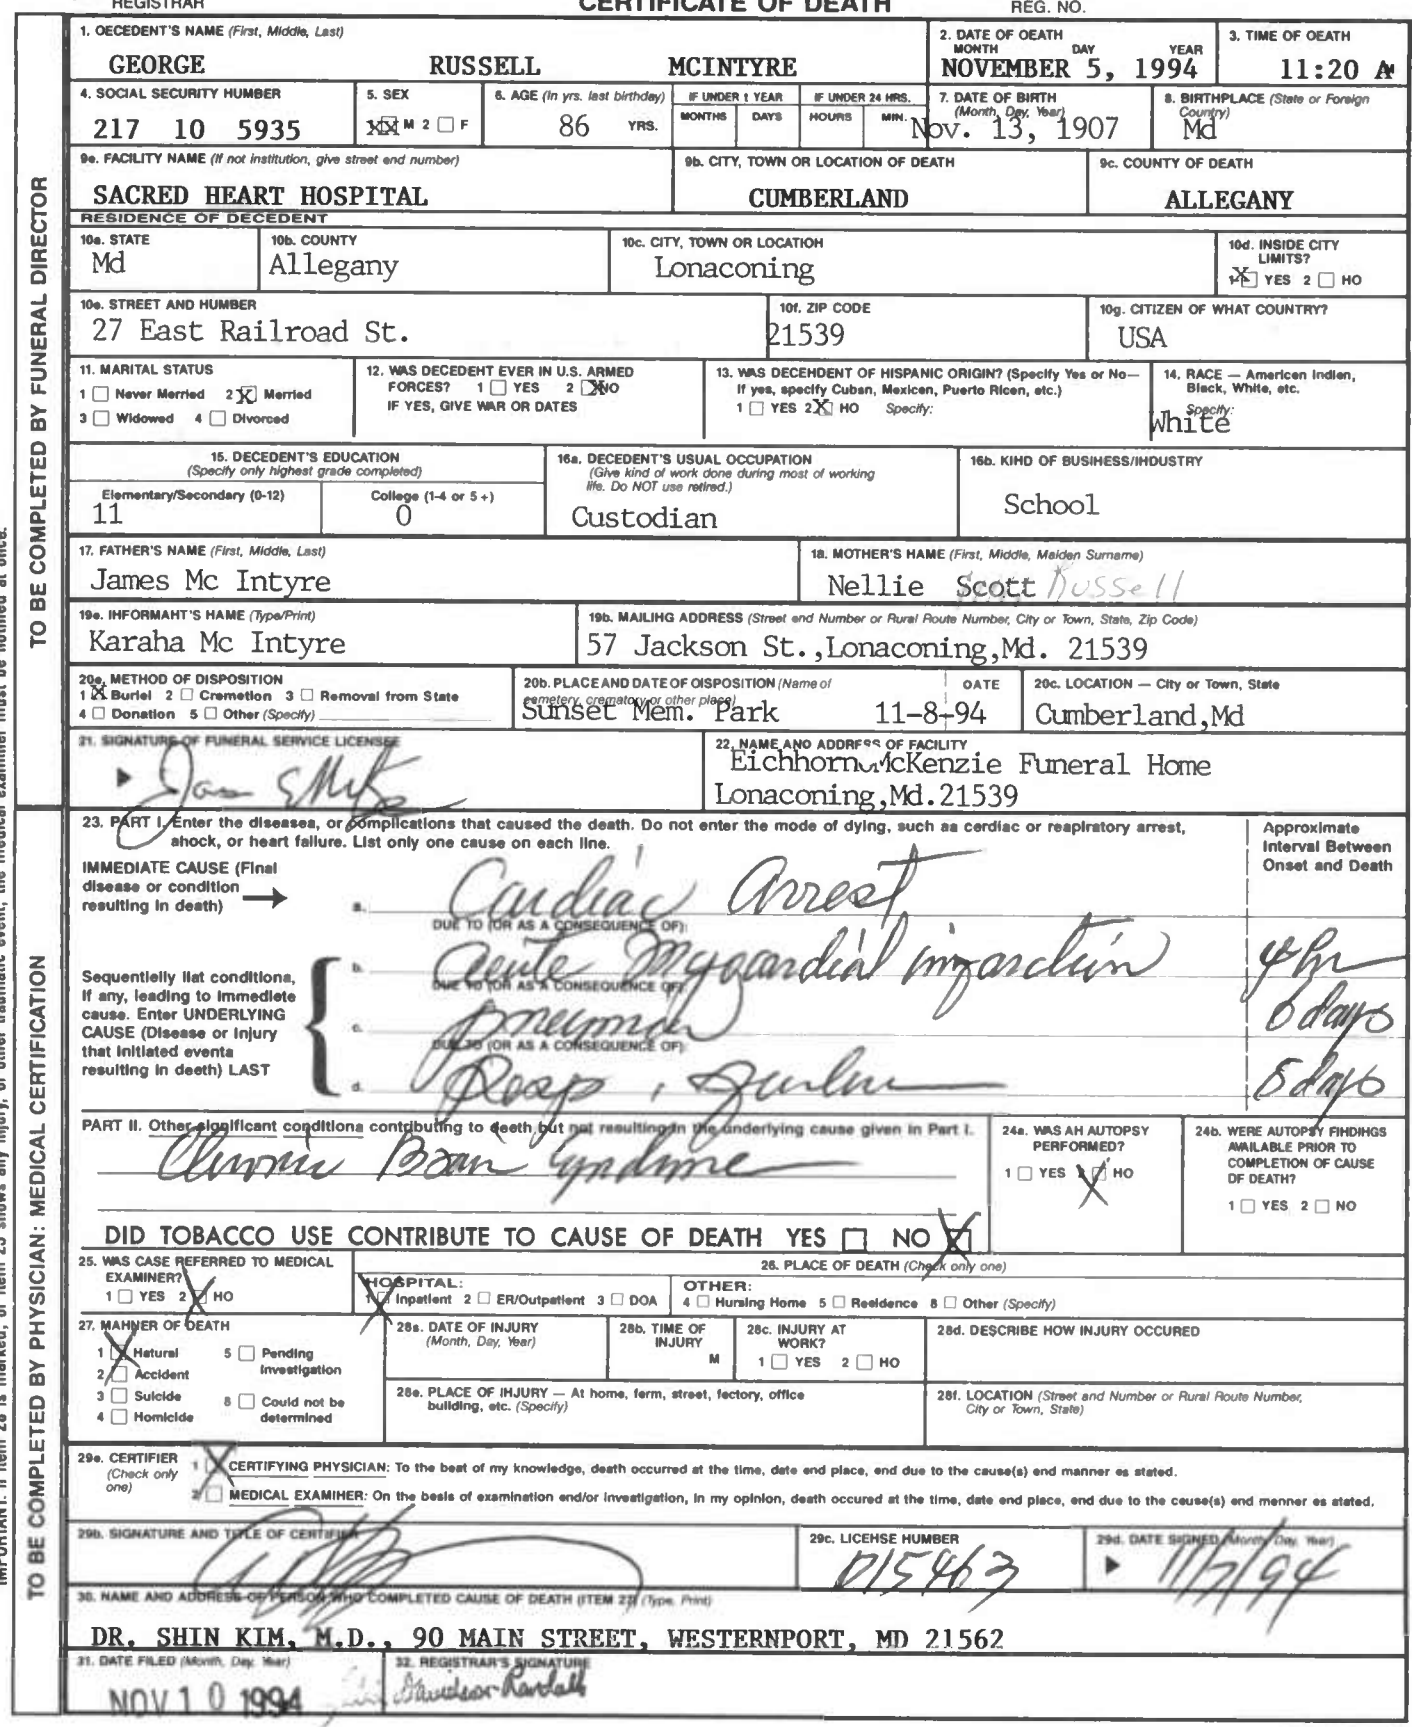 REGISTRAR
CERTIFICATE OF DEATH
REG. NO.
1. DECEDENT'S NAME (First, Middle, Last)
GEORGE RUSSELL MCINTYRE
2. DATE OF DEATH
MONTH DAY YEAR
NOVEMBER 5, 1994
3. TIME OF DEATH
11:20 A
4. SOCIAL SECURITY NUMBER
217 10 5935
5. SEX
M 2 F
6. AGE (In yrs. last birthday)
86 YRS.
IF UNDER 1 YEAR
MONTHS DAYS
IF UNDER 24 HRS.
HOURS MIN.
7. DATE OF BIRTH
(Month, Day, Year)
Nov. 13, 1907
8. BIRTHPLACE (State or Foreign
Country)
Md
9a. FACILITY NAME (If not institution, give street and number)
SACRED HEART HOSPITAL
9b. CITY, TOWN OR LOCATION OF DEATH
CUMBERLAND
9c. COUNTY OF DEATH
ALLEGANY
RESIDENCE OF DECEDENT
10a. STATE
Md
10b. COUNTY
Allegany
10c. CITY, TOWN OR LOCATION
Lonaconing
10d. INSIDE CITY
LIMITS?
1 X YES 2 NO
10e. STREET AND NUMBER
27 East Railroad St.
10f. ZIP CODE
21539
10g. CITIZEN OF WHAT COUNTRY?
USA
11. MARITAL STATUS
1 Never Married 2 X Married
3 Widowed 4 Divorced
12. WAS DECEDENT EVER IN U.S. ARMED
FORCES? 1 YES 2 X NO
IF YES, GIVE WAR OR DATES
13. WAS DECENDENT OF HISPANIC ORIGIN? (Specify Yes or No—
If yes, specify Cuban, Mexican, Puerto Rican, etc.)
1 YES 2 X NO Specify:
14. RACE — American Indian,
Black, White, etc.
Specify:
White
15. DECEDENT'S EDUCATION
(Specify only highest grade completed)
Elementary/Secondary (0-12)
11
College (1-4 or 5+)
0
16a. DECEDENT'S USUAL OCCUPATION
(Give kind of work done during most of working
life. Do NOT use retired.)
Custodian
16b. KIND OF BUSINESS/INDUSTRY
School
17. FATHER'S NAME (First, Middle, Last)
James Mc Intyre
18. MOTHER'S NAME (First, Middle, Maiden Surname)
Nellie Scott Russell
19a. INFORMANT'S NAME (Type/Print)
Karaha Mc Intyre
19b. MAILING ADDRESS (Street and Number or Rural Route Number, City or Town, State, Zip Code)
57 Jackson St.,Lonaconing,Md. 21539
20a. METHOD OF DISPOSITION
1 X Burial 2 Cremation 3 Removal from State
4 Donation 5 Other (Specify)
20b. PLACE AND DATE OF DISPOSITION (Name of
cemetery, crematory or other place)
DATE
Sunset Mem. Park 11-8-94
20c. LOCATION — City or Town, State
Cumberland,Md
21. SIGNATURE OF FUNERAL SERVICE LICENSEE
22. NAME AND ADDRESS OF FACILITY
Eichhorn McKenzie Funeral Home
Lonaconing,Md.21539
23. PART I. Enter the diseases, or complications that caused the death. Do not enter the mode of dying, such as cardiac or respiratory arrest,
shock, or heart failure. List only one cause on each line.
Approximate
Interval Between
Onset and Death
IMMEDIATE CAUSE (Final
disease or condition
resulting in death)
a. Cardiac Arrest
DUE TO (OR AS A CONSEQUENCE OF):
Sequentially list conditions,
if any, leading to immediate
cause. Enter UNDERLYING
CAUSE (Disease or injury
that initiated events
resulting in death) LAST
b. acute Myocardial infarction 4 hr
DUE TO (OR AS A CONSEQUENCE OF):
c. pneumonia 6 days
DUE TO (OR AS A CONSEQUENCE OF):
d. Resp. failure 5 days
PART II. Other significant conditions contributing to death but not resulting in the underlying cause given in Part I.
Chronic Brain Syndrome
24a. WAS AN AUTOPSY
PERFORMED?
1 YES 2 X NO
24b. WERE AUTOPSY FINDINGS
AVAILABLE PRIOR TO
COMPLETION OF CAUSE
OF DEATH?
1 YES 2 NO
DID TOBACCO USE CONTRIBUTE TO CAUSE OF DEATH YES NO X
25. WAS CASE REFERRED TO MEDICAL
EXAMINER?
1 YES 2 X NO
26. PLACE OF DEATH (Check only one)
HOSPITAL:
1 X Inpatient 2 ER/Outpatient 3 DOA
OTHER:
4 Nursing Home 5 Residence 6 Other (Specify)
27. MANNER OF DEATH
1 X Natural 5 Pending
2 Accident Investigation
3 Suicide 6 Could not be
4 Homicide determined
28a. DATE OF INJURY
(Month, Day, Year)
28b. TIME OF
INJURY
M
28c. INJURY AT
WORK?
1 YES 2 NO
28d. DESCRIBE HOW INJURY OCCURED
28e. PLACE OF INJURY — At home, farm, street, factory, office
building, etc. (Specify)
28f. LOCATION (Street and Number or Rural Route Number,
City or Town, State)
29a. CERTIFIER
(Check only
one)
1 X CERTIFYING PHYSICIAN: To the best of my knowledge, death occurred at the time, date and place, and due to the cause(s) and manner as stated.
2 MEDICAL EXAMINER: On the basis of examination and/or investigation, in my opinion, death occured at the time, date and place, and due to the cause(s) and manner as stated.
29b. SIGNATURE AND TITLE OF CERTIFIER
29c. LICENSE NUMBER
D15463
29d. DATE SIGNED (Month, Day, Year)
11/7/94
30. NAME AND ADDRESS OF PERSON WHO COMPLETED CAUSE OF DEATH (ITEM 23) (Type, Print)
DR. SHIN KIM, M.D., 90 MAIN STREET, WESTERNPORT, MD 21562
31. DATE FILED (Month, Day, Year)
NOV 10 1994
32. REGISTRAR'S SIGNATURE
Davidson-Randall
TO BE COMPLETED BY FUNERAL DIRECTOR
TO BE COMPLETED BY PHYSICIAN: MEDICAL CERTIFICATION